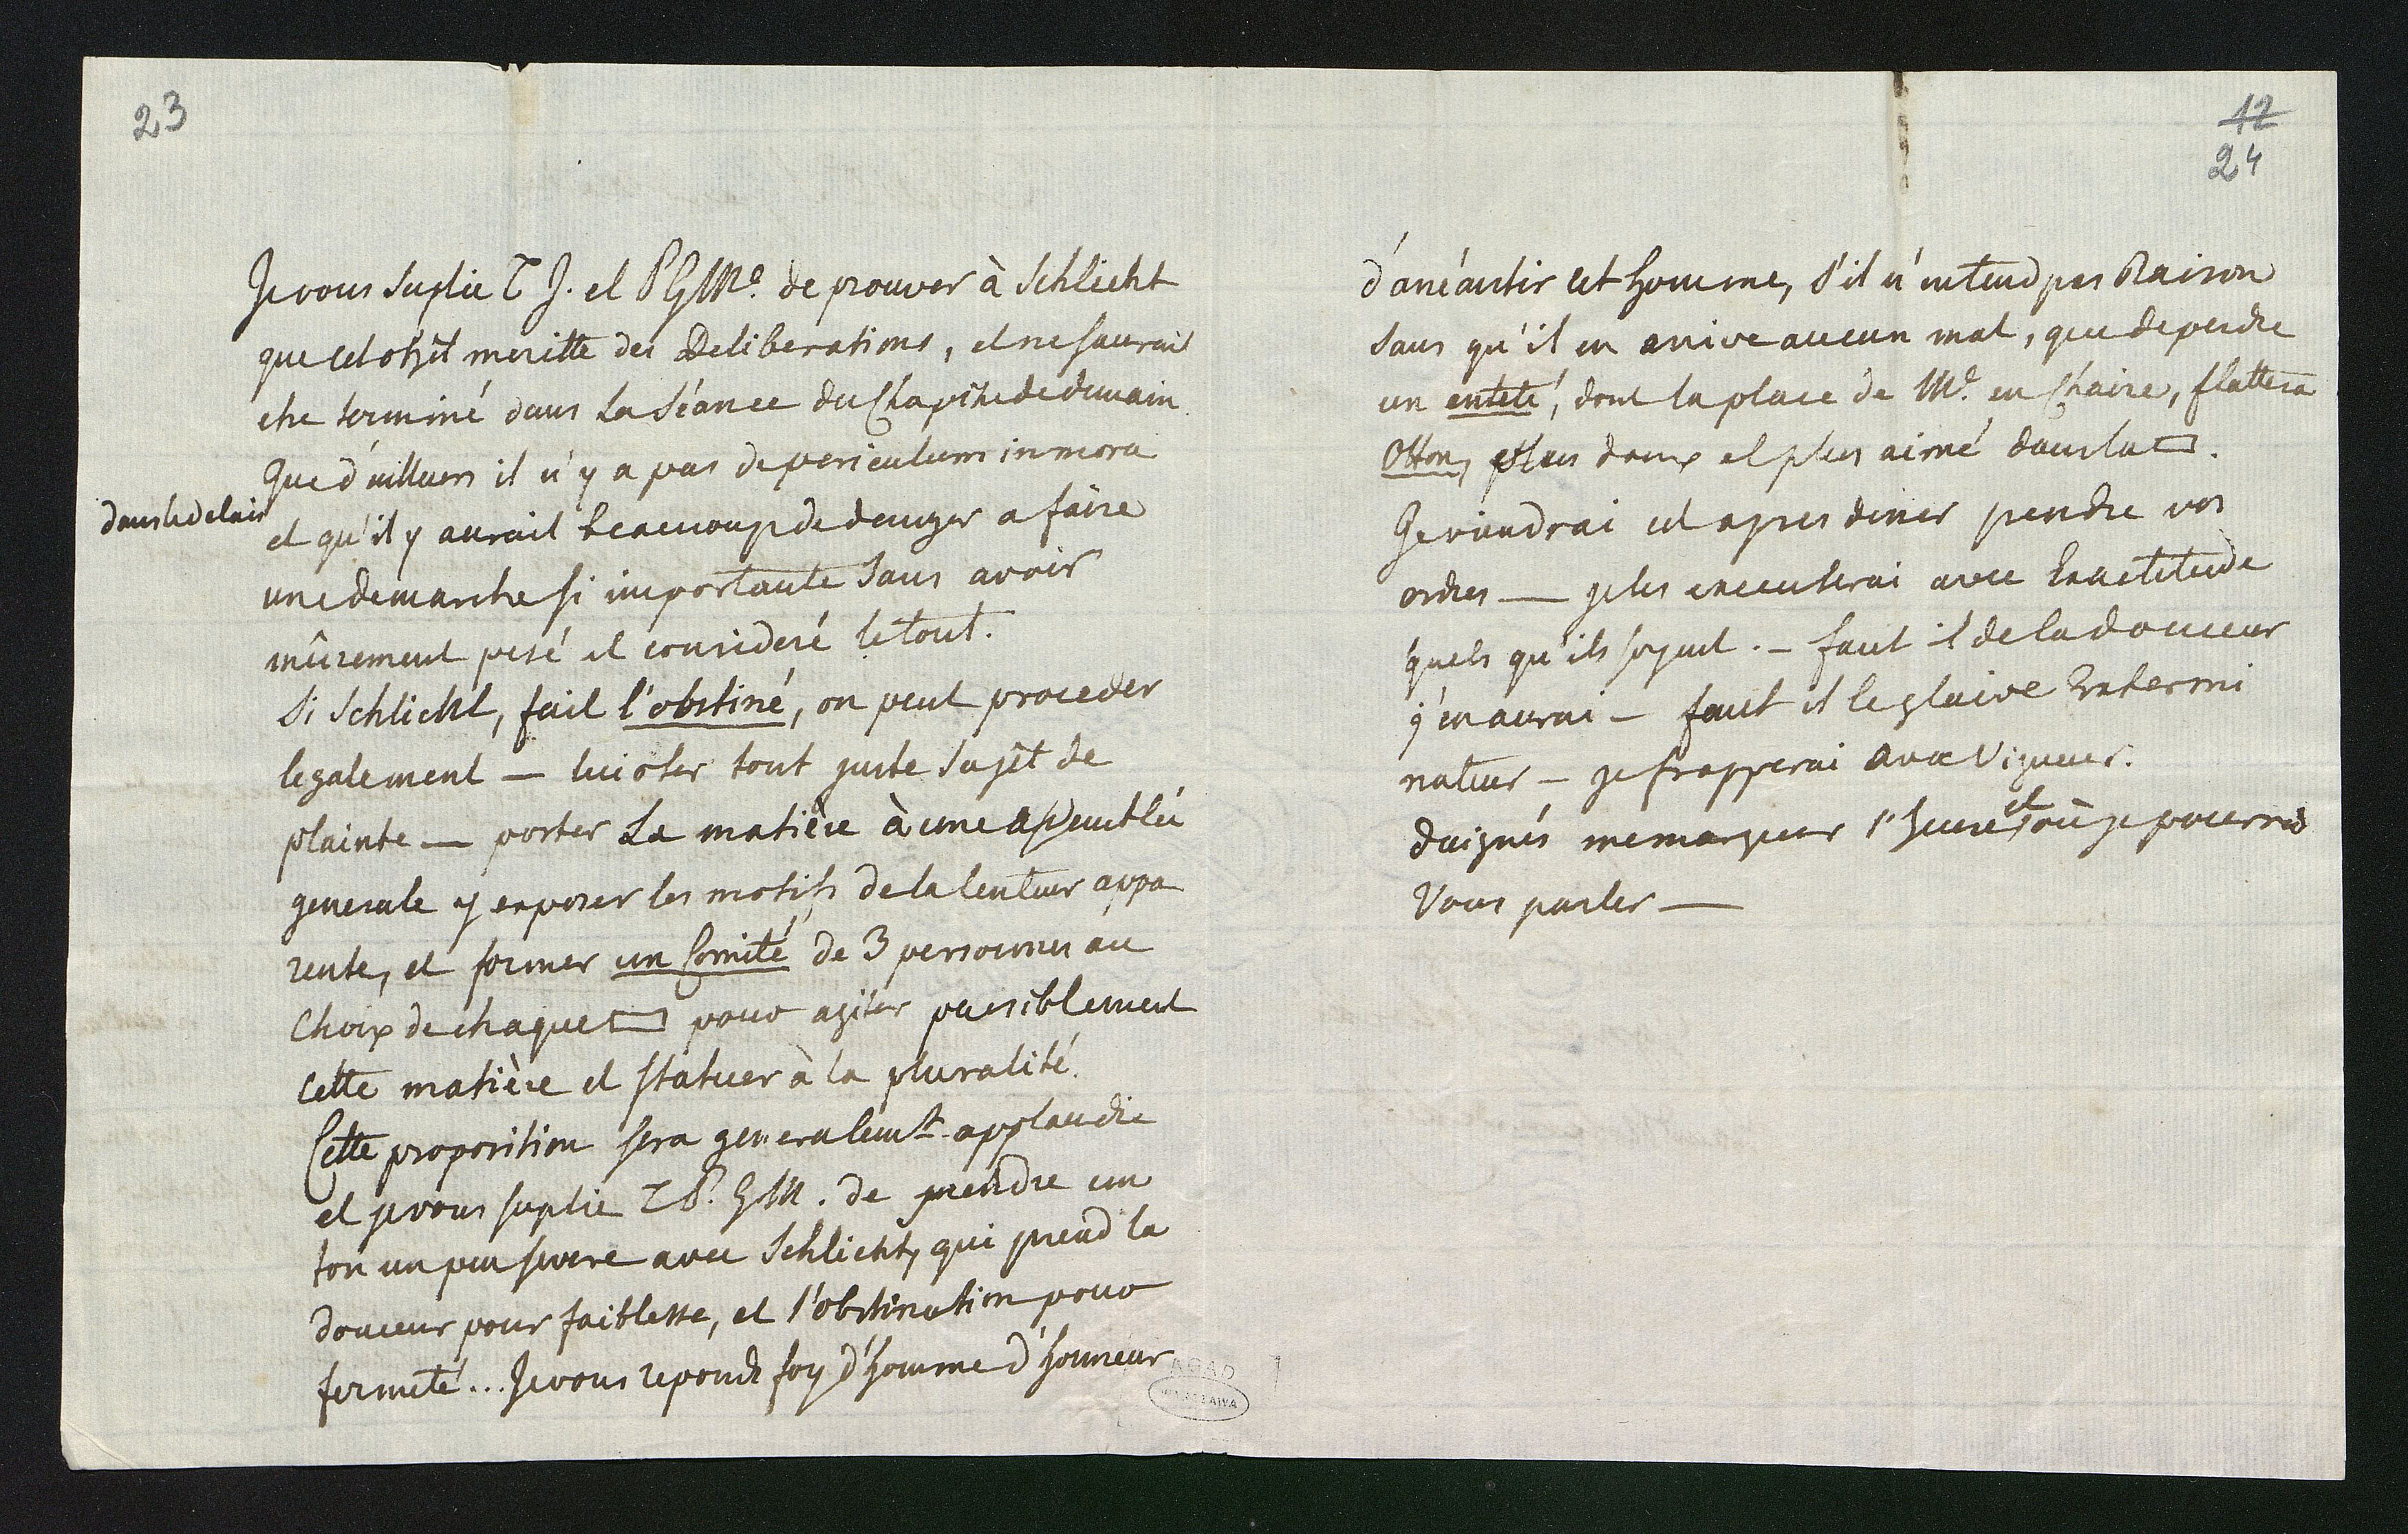 23
Je vous suplie T J. et P G Me. de prouver à Schlicht
que cet objêt meritte des Deliberations, et ne saurait
etre terminé dans la séance du Chapitre de demain.
Que d'ailleurs il n'y a pas de periculum in mora
dans le delai
et qu'il y aurait beaucoup de danger a faire
une demarche si importante sans avoir
mûrement pesé et consideré le tout.
Si Schlicht, fait l'obstiné, on peut proceder
legalement — lui oter tout juste sujêt de
plainte — porter la matière à une assemblée
generale y exposer les motifs de la lenteur appa
rente, et former un Comité de 3 personnes au
choix de chaque □ pour agiter paisiblement
cette matière et statuer à la pluralité.
Cette proposition sera generalemt. applaudie
et je vous suplie T P. G M. de prendre un
ton un peu severe avec Schlicht, qui prend la
douceur pour faiblesse, et l'obstination pour
fermeté... Je vous reponds foy d'homme d'honneur
AGAD
WARSZAWA
12
24
d'anéantir cet homme, s'il n'entend pas Raison
sans qu'il en arrive aucun mal, que de perdre
un enteté, dont la place de Me. en Chaire, flattera
Otton, plus doux et plus aimé dans la □.
Je viendrai cet apres diner prendre vos
ordres — je les executerai avec Exactitude
quels qu'ils soyent. — faut il de la douceur
j'en aurai — faut il le glaive Extermi
nateur — je frapperai avec Vigueur.
daignés me marquer l'heure et où je pourrai
Vous parler —